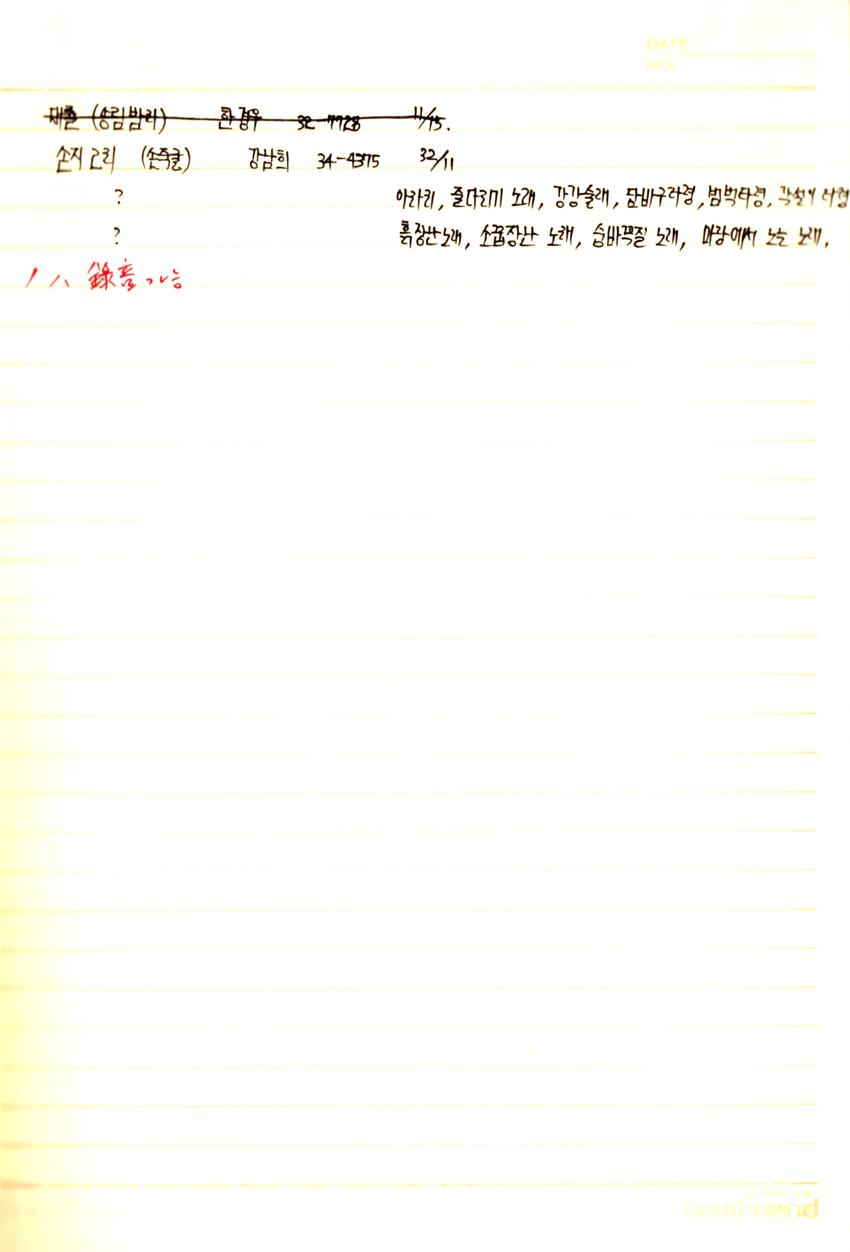 재출 (송림밤리) 한경우 32-7728 11/15.
손지고리 (손죽골) 강남희 34-4375 32/11
? 아라리, 줄다리기 노래, 강강술래, 담바구타령, 범벅타령, 각설이 타령
? 흙장난노래, 소꿉장난 노래, 숨바꼭질 노래, 마당에서 노는 노래.
人 錄音 가능